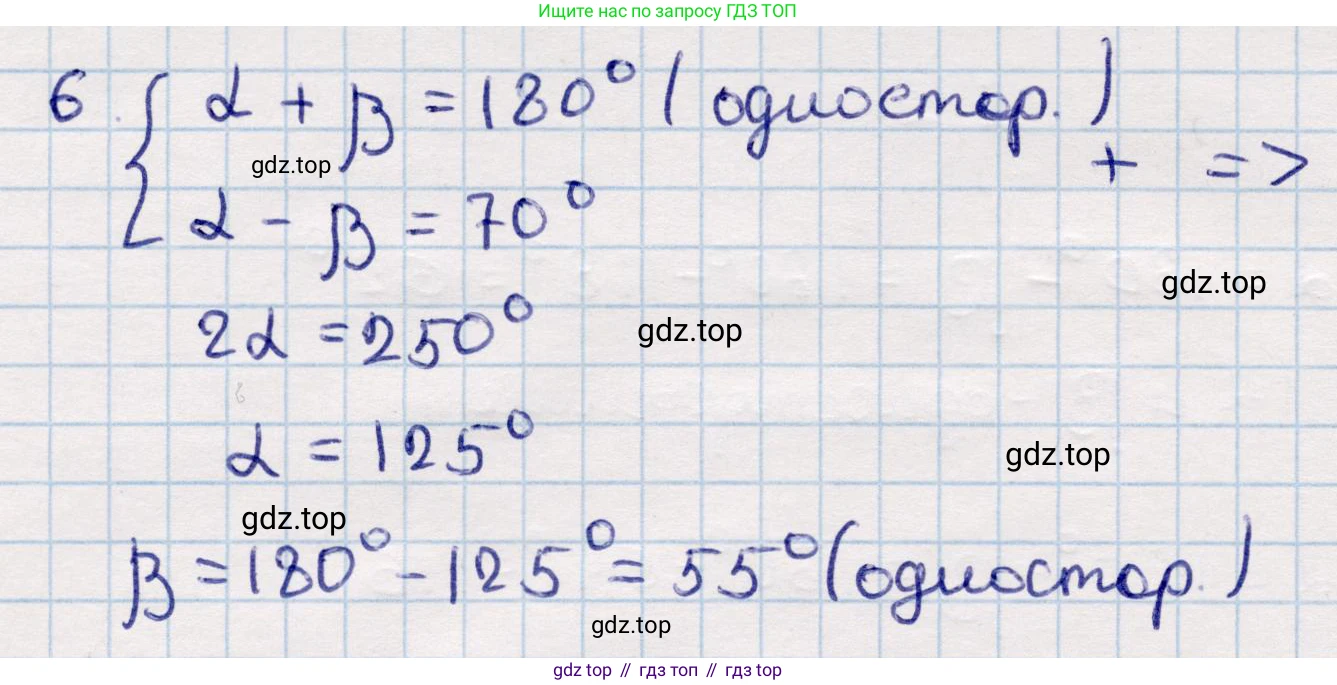 Ищите нас по запросу ГДЗ ТОП
6 { α + β = 180° ( одностор. )
gdz.top
+ =>
α - β = 70°
gdz.top
2α = 250°
gdz.top
α = 125°
gdz.top
gdz.top
β = 180° - 125° = 55° (одностор.)
gdz.top
gdz top // гдз топ // гдз top